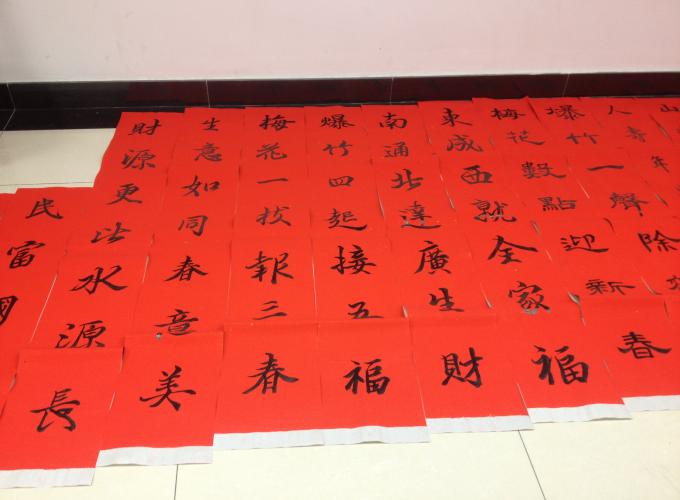 山
人壽年
爆竹一聲除
梅花數點迎新春
東成西就全家福
南通北達廣生財
爆竹四起接五福
梅花一枝報三春
生意如同春意美
財源更比水源長
民富